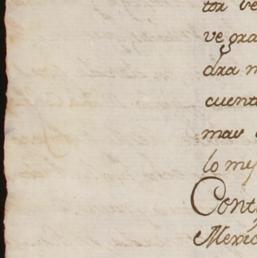 tor ve
ve gra
dra n
cuent
mav
lo my
Cont
Mexic